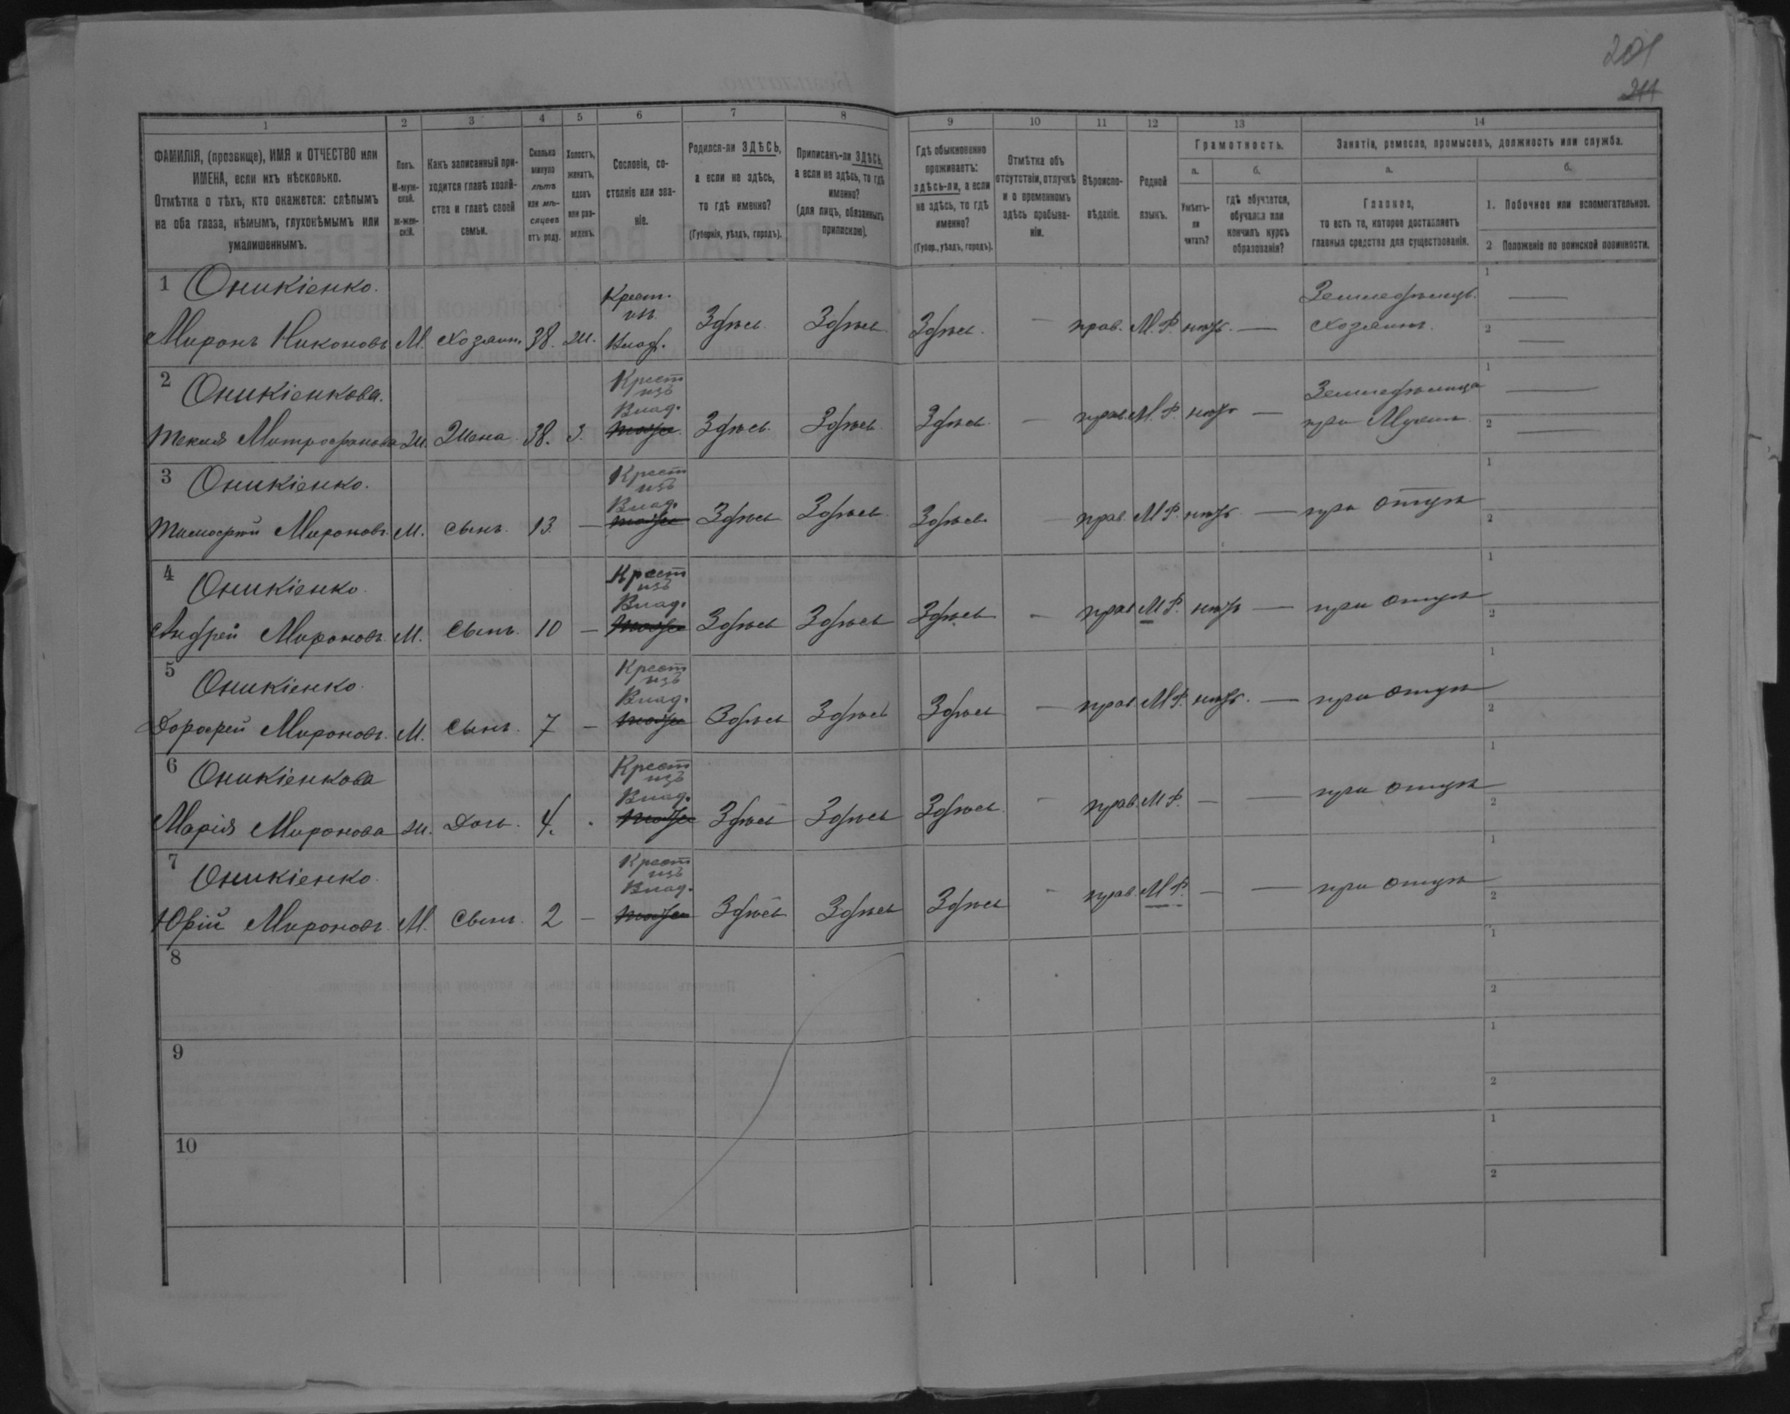 201
211
1 2 3 4 5 6 7 8 9 10 11 12 13 14
ФАМИЛІЯ, (прозвище), ИМЯ и ОТЧЕСТВО или
ИМЕНА, если ихъ нѣсколько.
Отмѣтка о тѣхъ, кто окажется: слѣпымъ
на оба глаза, нѣмымъ, глухонѣмымъ или
умалишеннымъ.
Полъ.
М-муж-
ской.
Ж-жен-
скій.
Какъ записанный при-
ходится главѣ хозяй-
ства и главѣ своей
семьи.
Сколько
минуло
лѣтъ
или мѣ-
сяцевъ
отъ роду.
Холостъ,
женатъ,
вдовъ
или раз-
веденъ.
Сословіе, со-
стояніе или зва-
ніе.
Родился-ли ЗДѢСЬ,
а если не здѣсь,
то гдѣ именно?
(Губернія, уѣздъ, городъ).
Приписанъ-ли ЗДѢСЬ,
а если не здѣсь, то гдѣ
именно?
(для лицъ, обязанныхъ
припискою).
Гдѣ обыкновенно
проживаетъ:
здѣсь-ли, а если
не здѣсь, то гдѣ
именно?
(Губер., уѣздъ, городъ).
Отмѣтка объ
отсутствіи, отлучкѣ
и о временномъ
здѣсь пребыва-
ніи.
Вѣроиспо-
вѣданіе.
Родной
языкъ.
Грамотность.
а.
Умѣетъ-
ли
читать?
б.
гдѣ обучается,
обучался или
кончилъ курсъ
образованія?
Занятіе, ремесло, промыселъ, должность или служба.
а.
Главное,
то есть то, которое доставляетъ
главныя средства для существованія.
б.
1. Побочное или вспомогательное.
2 Положеніе по воинской повинности.
1 Оникіенко. Крест. Земледѣлецъ. 1 —
изъ
Миронъ Никоновъ М. хозяинъ 38. ж. Влад. Здѣсь Здѣсь Здѣсь — прав. М.Р. нѣтъ. — хозяинъ. 2 —
2 Оникіенкова. Крест Земледѣлица 1 —
изъ
Влад.
Текля Митрофанова ж. Жена 38. З. тоже Здѣсь Здѣсь Здѣсь — прав. М.Р. нѣтъ — при Мужѣ 2 —
3 Оникіенко. Крест 1
изъ
Влад.
Тимофей Мироновъ М. сынъ 13. — тоже Здѣсь Здѣсь Здѣсь — прав. М.Р. нѣтъ — при отцѣ 2
4 Оникіенко. Крест 1
изъ
Влад.
Андрей Мироновъ М. Сынъ 10 — тоже Здѣсь Здѣсь Здѣсь — прав М.Р. нѣтъ — при отцѣ 2
5 Оникіенко. Крест 1
изъ
Влад.
Дорофей Мироновъ М. сынъ 7 — тоже Здѣсь Здѣсь Здѣсь — прав М.Р. нѣтъ. — при отцѣ 2
6 Оникіенкова Крест 1
изъ
Влад.
Марія Миронова ж. дочь. 4. . тоже Здѣсь Здѣсь Здѣсь — прав. М.Р. — — при отцѣ 2
7 Оникіенко. Крест 1
изъ
Влад.
Юрій Мироновъ М. сынъ 2 — тоже Здѣсь Здѣсь Здѣсь — прав. М.Р — — при отцѣ 2
8 1
2
9 1
2
10 1
2